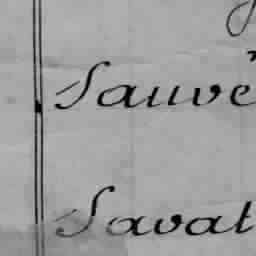 Sauvé
Savat